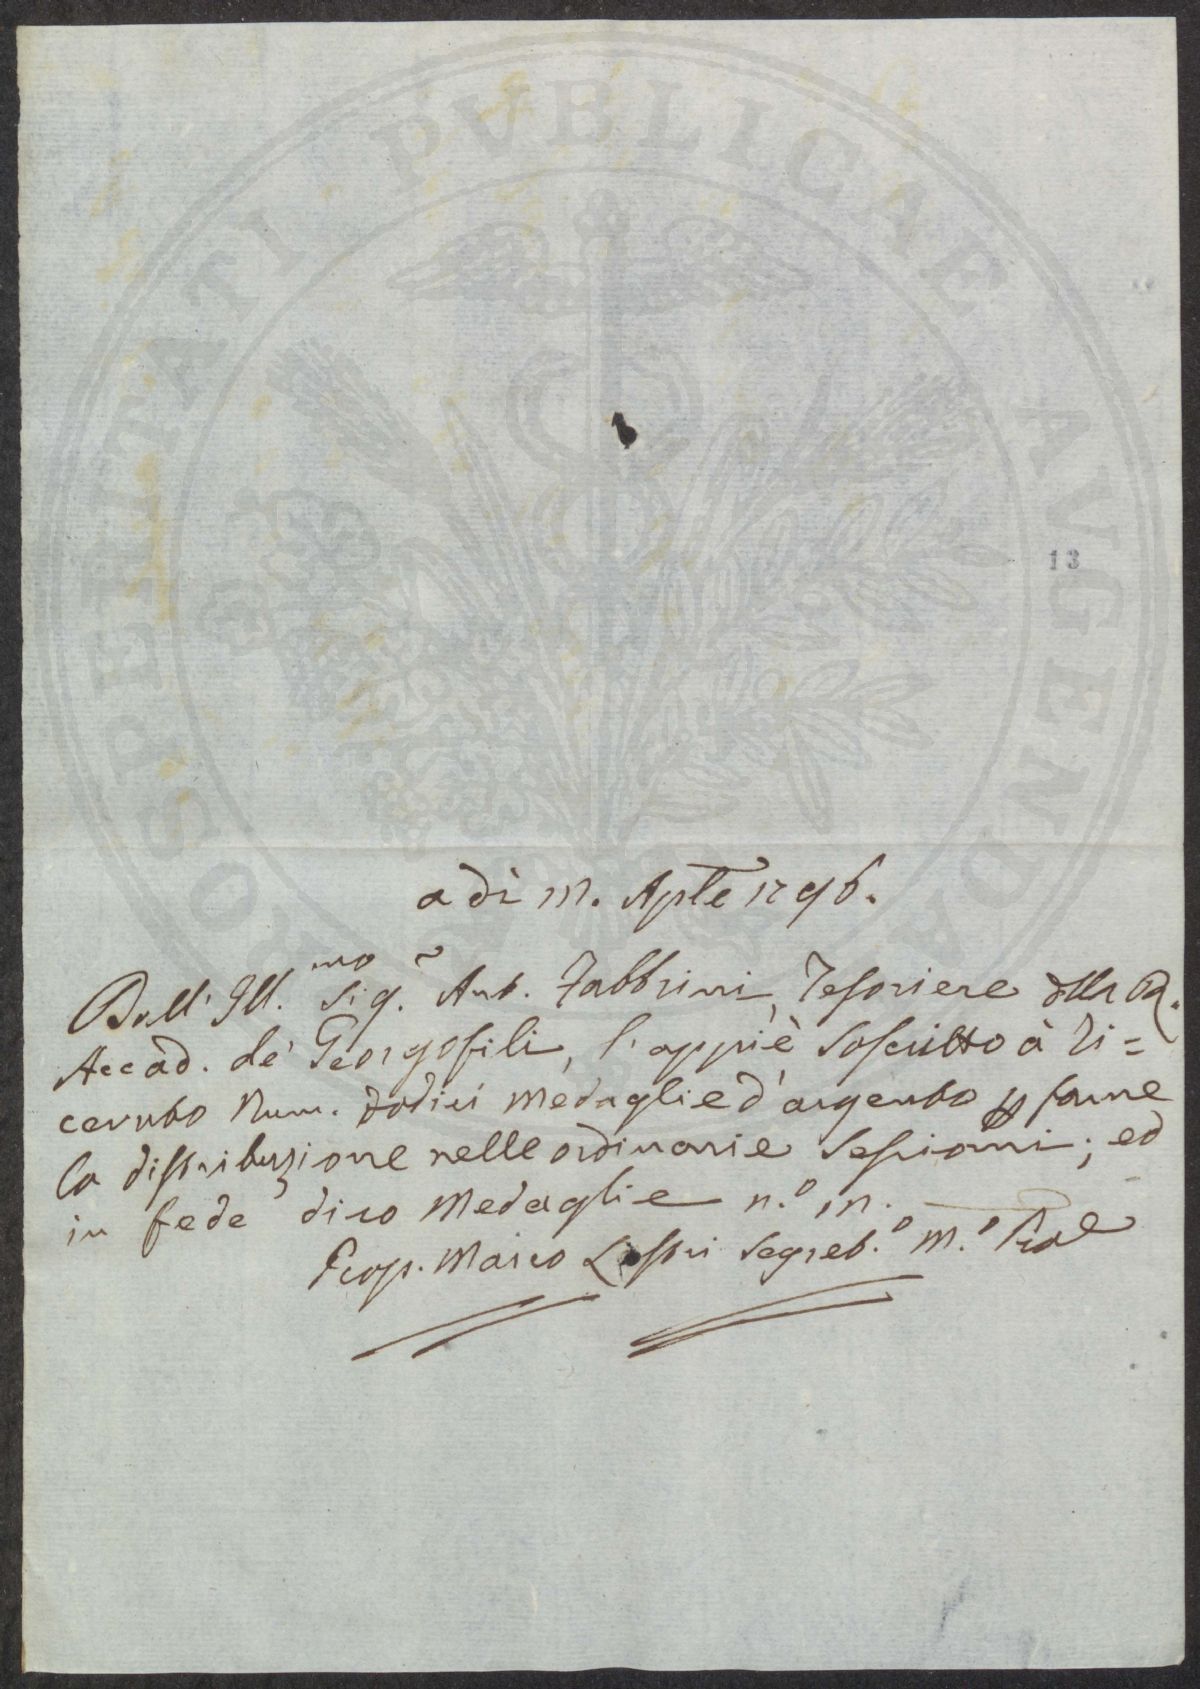 SOSPEITATI PVBLICAE AVGENDA
13
adì 12. Aple 1796.
Dall' Ill.mo Sig. Ant. Fabbrini, Tesoriere della R.
Accad. de' Georgofili, l'appiè Soscritto à ri=
cevuto Num. dodici medaglie d'argento p farne
la distribuzione nelle ordinarie Sessioni; ed
in fede dico Medaglie n.o 12.
Prop. Marco Lastri Segret.o m.o Pria